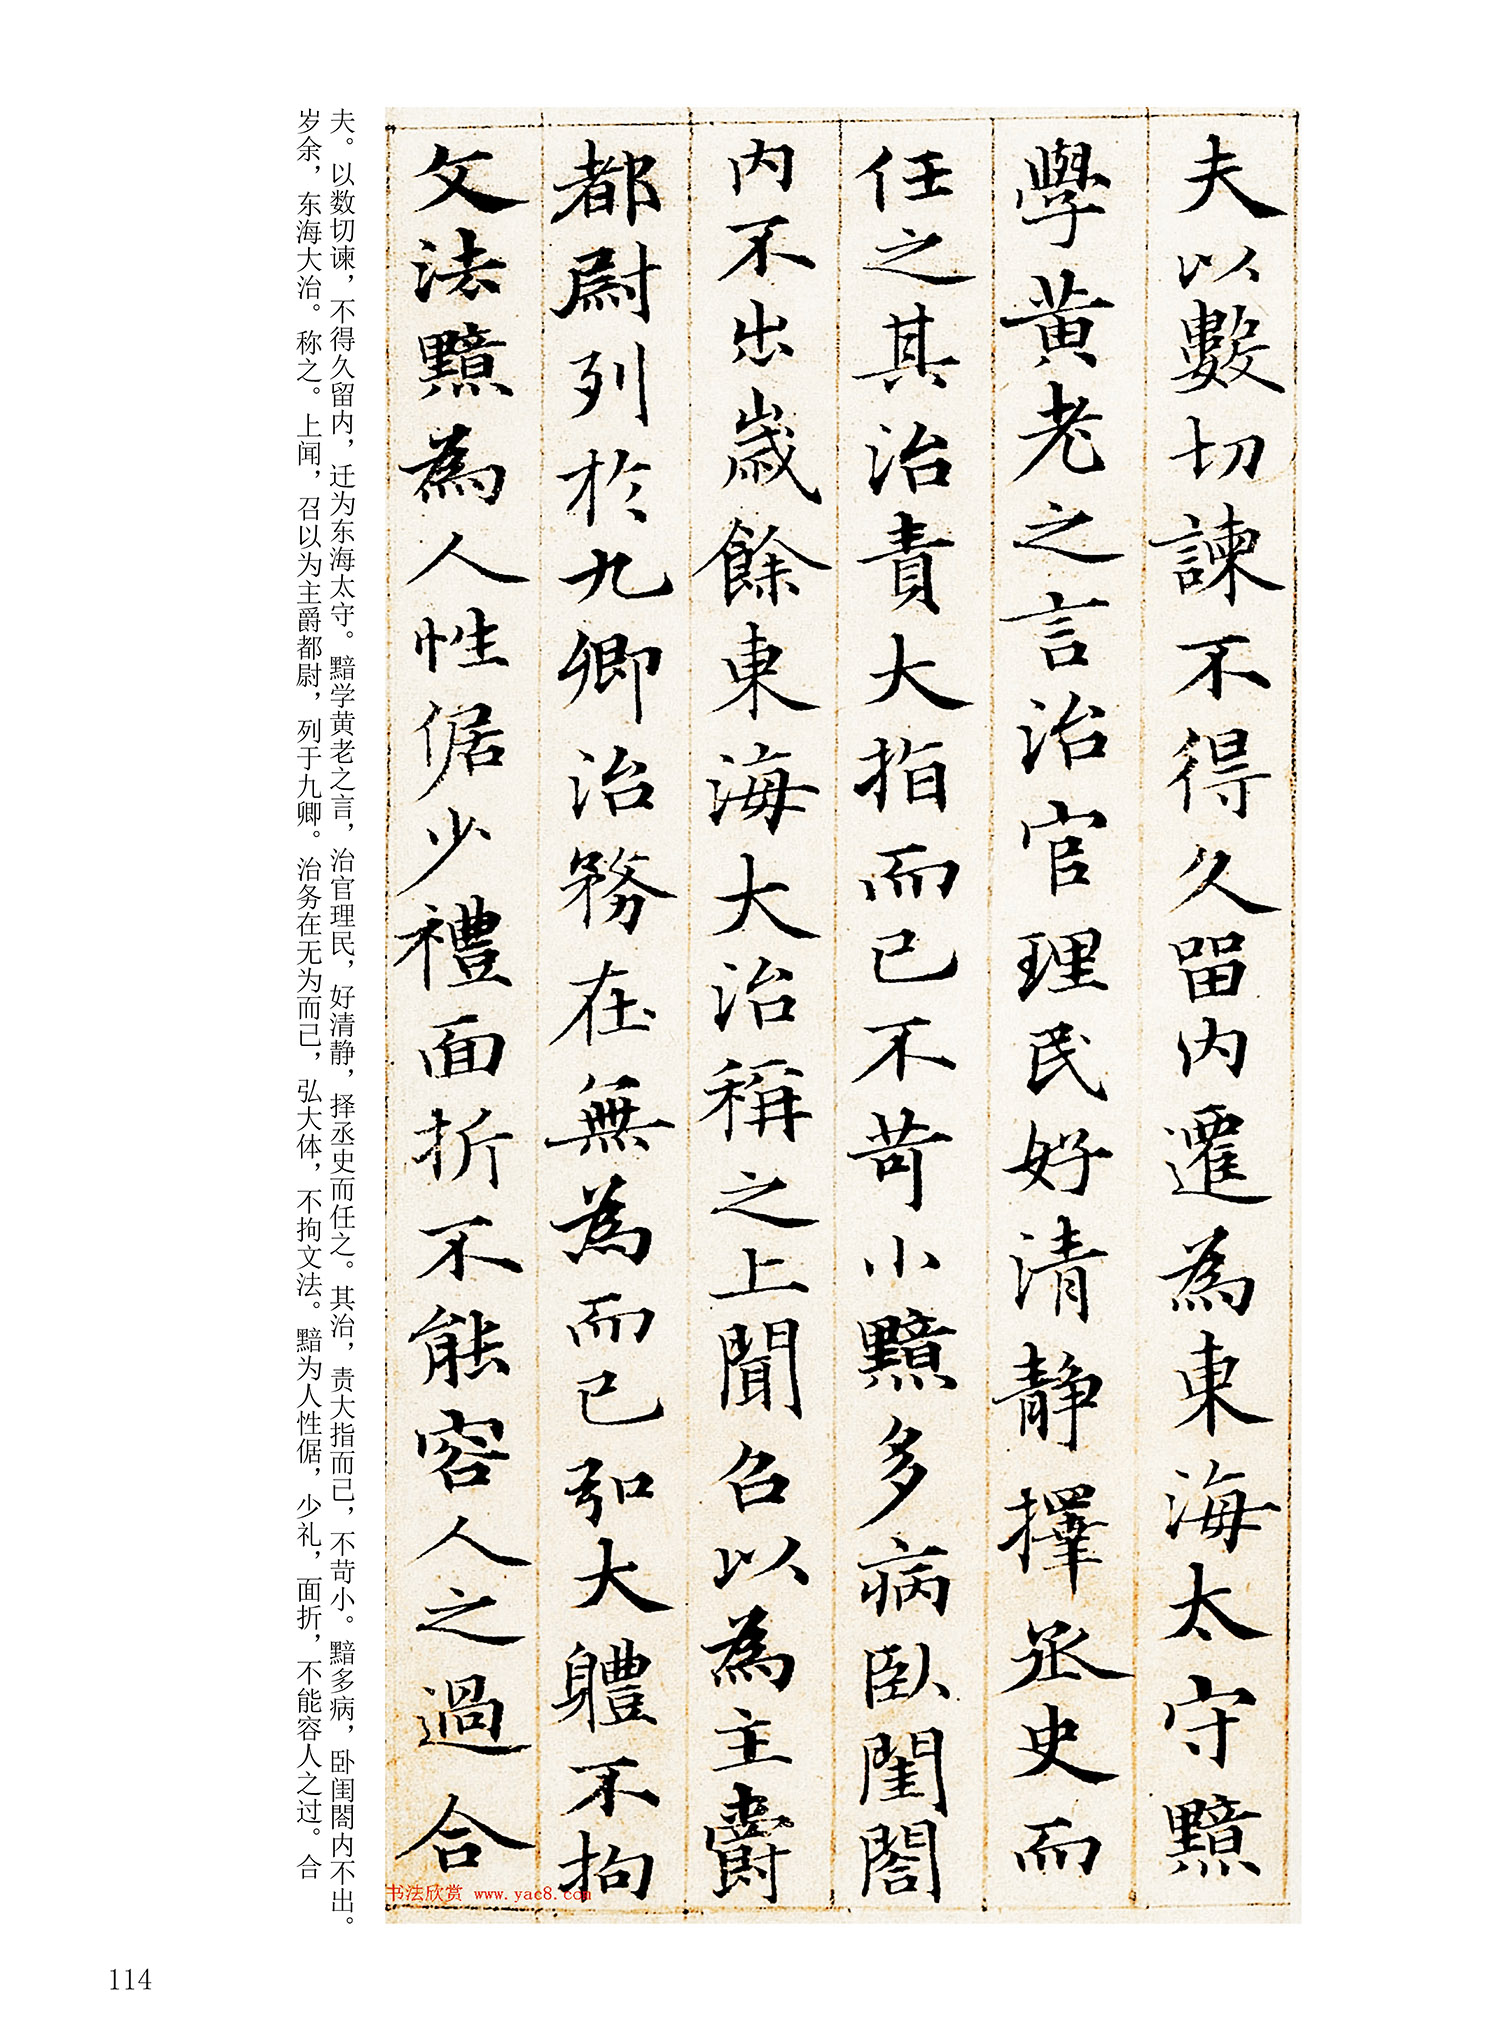 夫以數切諫不得久留内遷為東海太守黯
學黄老之言治官理民好清静擇丞史而
任之其治責大指而已不苛小黯多病卧閨閤
内不出歲餘東海大治稱之上聞召以為主爵
都尉列於九卿治務在無為而已弘大體不拘
文法黯為人性倨少禮面折不能容人之過合
夫。以数切谏，不得久留内，迁为东海太守。黯学黄老之言，治官理民，好清静，择丞史而任之。其治，责大指而已，不苛小。黯多病，卧闺閤内不出。
岁余，东海大治。称之。上闻，召以为主爵都尉，列于九卿。治务在无为而已，弘大体，不拘文法。黯为人性倨，少礼，面折，不能容人之过。合
书法欣赏 www.yac8.com
114